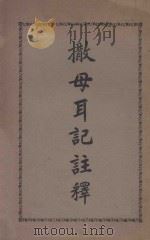 狗
撒母耳記註釋